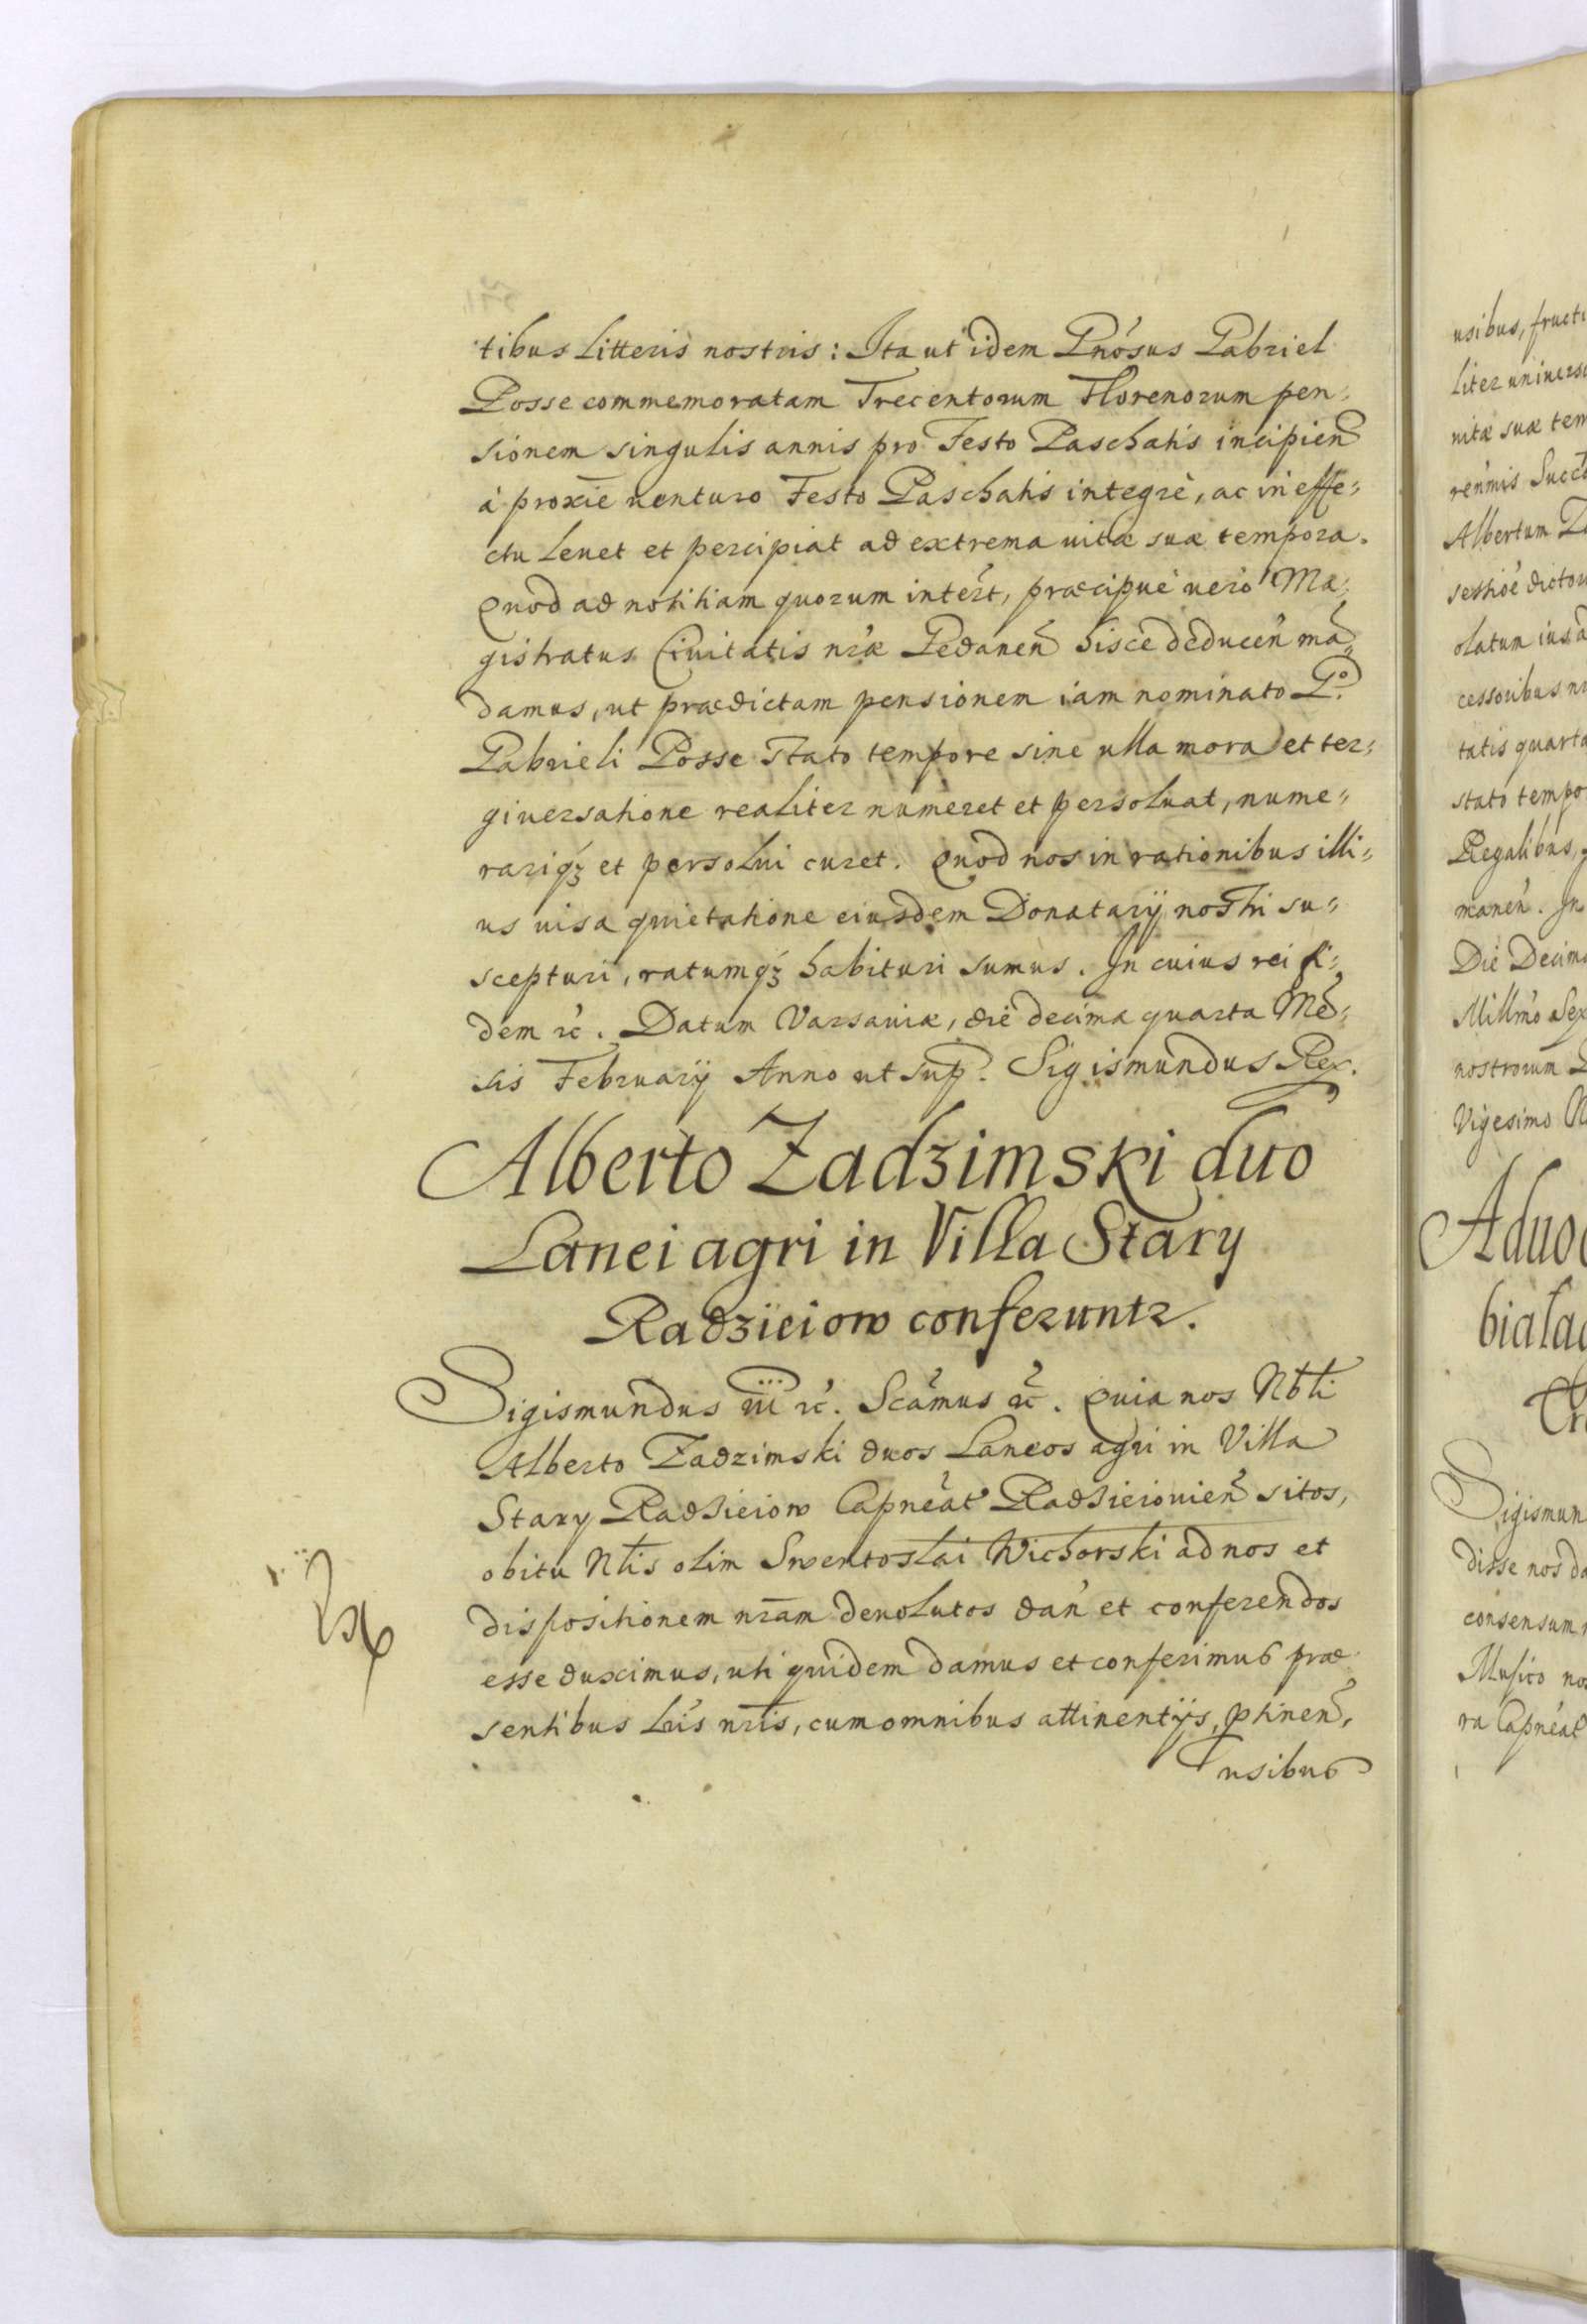 tibus litteris nostris: Ita ut idem Gnosus Gabriel
Posse commemoratam Trecentorum Florenorum pen-
sionem singulis annis pro Festo Paschatis incipien
à proxie venturo Festo Paschatis integrè, ac in effe-
ctu levet et percipiat ad extrema vitæ suæ tempora.
Quod ad notitiam quorum interst, præcipuè vero Ma-
gistratus Civitatis nræ Gedanen hisce deducen mã-
damus, ut prædictam pensionem iam nominato Go.
Gabrieli Posse stato tempore sine ulla mora et ter-
giversatione realiter numeret et persolvat, nume-
rariq3 et persolvi curet. Quod nos in rationibus illi-
us visa quietatione eiusdem Donatarij nostri su-
scepturi, ratumq3 habituri sumus. In cuius rei fi-
dem rc. Datum Varsaviæ, die decima quarta Mẽ-
sis February Anno ut sup. Sigismundus Rex.
Alberto Zadzimski duo
Lanei agri in Villa Stary
Radzieiow conferuntr.
Sigismundus iii rc. Scamus rc. Quia nos Nbli
Alberto Zadzimski duos Laneos agri in Villa
Stary Radzieiow Capneat Radzieiovien sitos,
obitu Nlis olim Swentoslai Wichorski ad nos et
dispositionem nram devolutos dan et conferendos
esse duximus, uti quidem damus et conferimus præ
sentibus lris nris, cum omnibus attinentijs, ptinen,
usibus
usibus, fructi
liter univers
vitæ suæ tem
renmis Succ
Albertum
sessioe dicto
olatum ius
cessoribus n
tatis quarta
stato tempo
Regalibus,
manen. In
Die Decima
Millmo Sex
nostrorum
Vigesimo
Advoc
biala
Sigismun
disse nos da
consensum
Musico no
ra Capneat